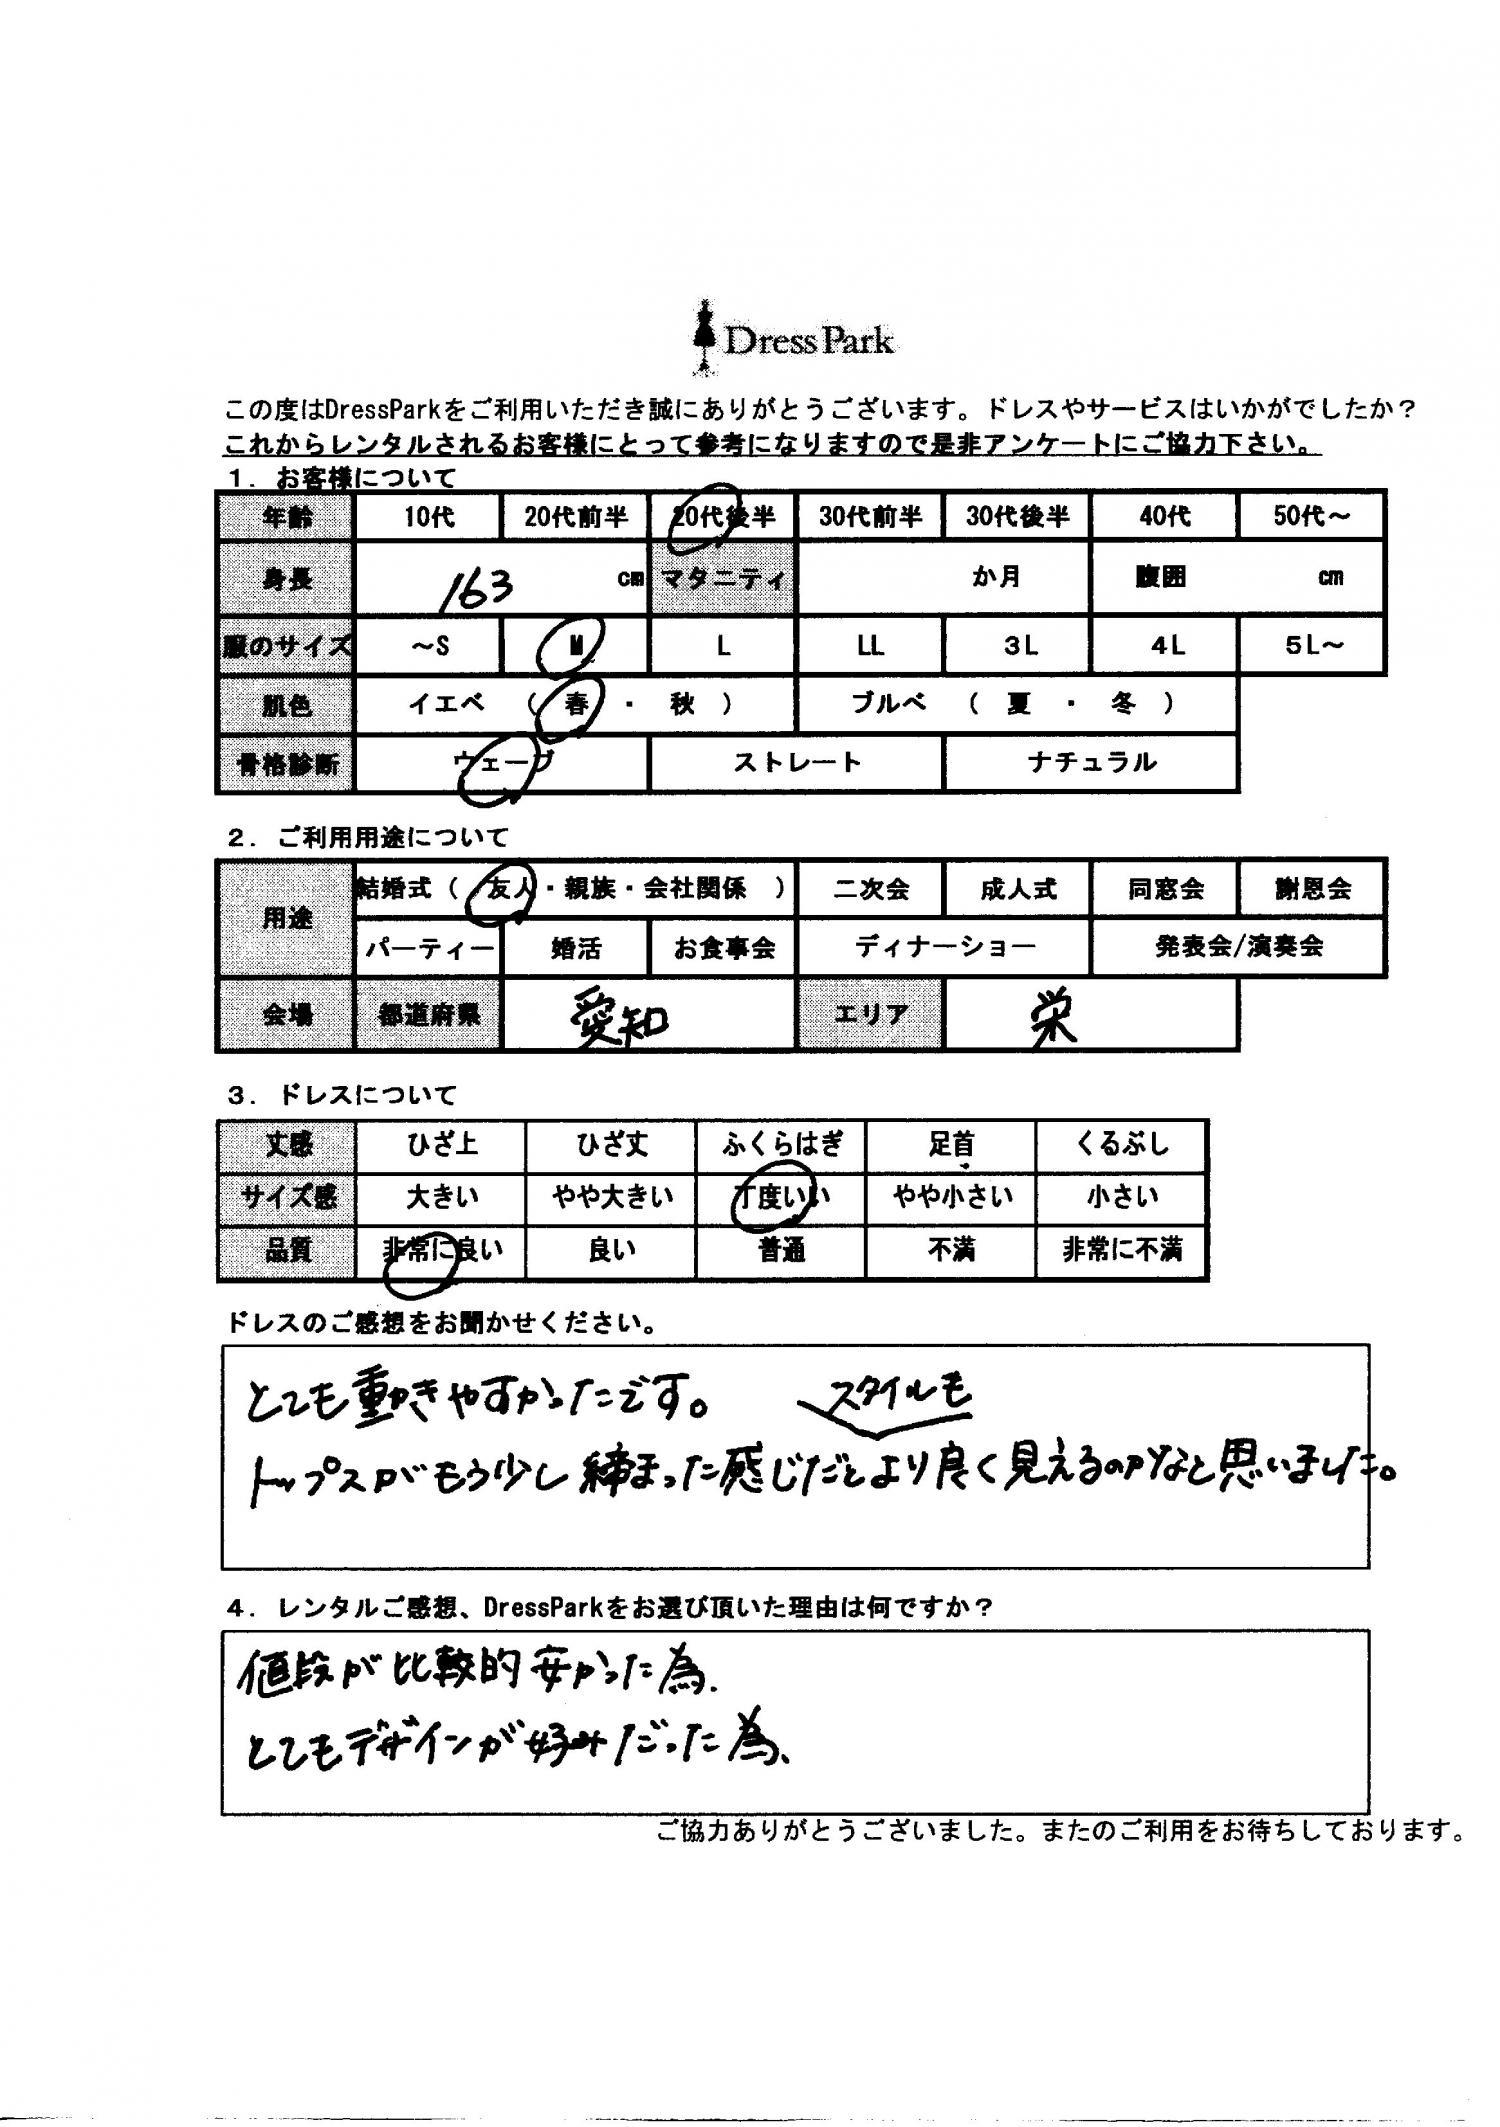 Dress Park
この度はDressParkをご利用いただき誠にありがとうございます。ドレスやサービスはいかがでしたか？
これからレンタルされるお客様にとって参考になりますので是非アンケートにご協力下さい。
１．お客様について
年齢 10代 20代前半 20代後半 30代前半 30代後半 40代 50代～
身長 163 cm マタニティ か月 腹囲 cm
服のサイズ ～S M L LL 3L 4L 5L～
肌色 イエベ （ 春 ・ 秋 ） ブルベ （ 夏 ・ 冬 ）
骨格診断 ウェーブ ストレート ナチュラル
２．ご利用用途について
用途 結婚式（ 友人・親族・会社関係 ） 二次会 成人式 同窓会 謝恩会
パーティー 婚活 お食事会 ディナーショー 発表会/演奏会
会場 都道府県 愛知 エリア 栄
３．ドレスについて
丈感 ひざ上 ひざ丈 ふくらはぎ 足首 くるぶし
サイズ感 大きい やや大きい 丁度いい やや小さい 小さい
品質 非常に良い 良い 普通 不満 非常に不満
ドレスのご感想をお聞かせください。
とても動きやすかったです。 スタイルも
トップスがもう少し締まった感じだとより良く見えるのかなと思いました。
４．レンタルご感想、DressParkをお選び頂いた理由は何ですか？
値段が比較的安かった為、
とてもデザインが好みだった為、
ご協力ありがとうございました。またのご利用をお待ちしております。